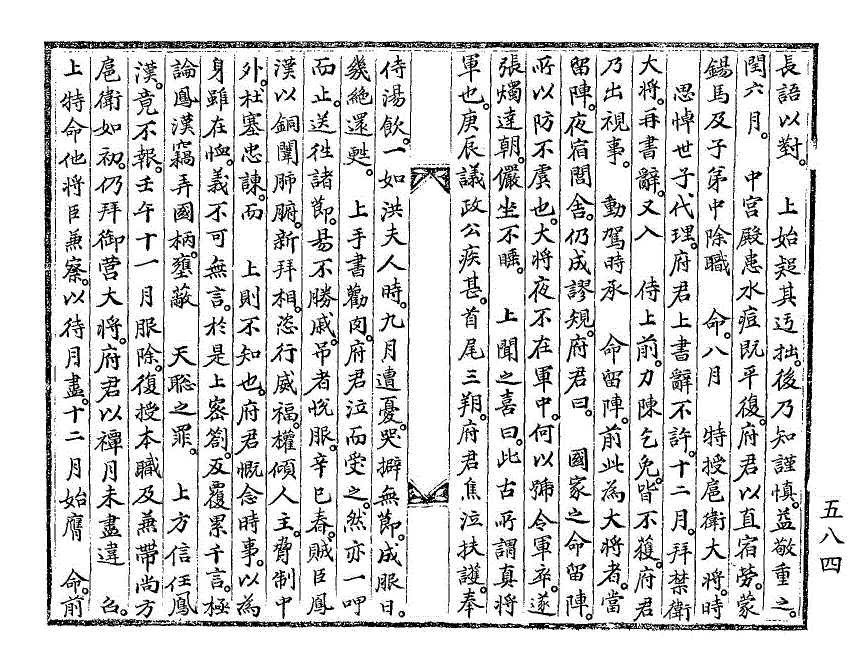 長語以對。 上始疑其迂拙。後乃知謹愼。益敬重之。
閏六月。 中宮殿患水痘既平復。府君以直宿勞。蒙
錫馬及子第中除職 命。八月 特授扈衛大將。時
思悼世子代理。府君上書辭不許。十二月。拜禁衛
大將。再書辭。又入 侍上前。力陳乞免。皆不獲。府君
乃出視事。 動駕時承 命留陣。前此為大將者。當
留陣。夜宿閭舍。仍成謬規。府君曰。 國家之命留陣。
所以防不虞也。大將夜不在軍中。何以號令軍卒。遂
張燭達朝。儼坐不睡。 上聞之喜曰。此古所謂真將
軍也。庚辰議政公疾甚。首尾三朔。府君焦泣扶護。奉
侍湯飮。一如洪夫人時。九月遭憂。哭擗無節。成服日。
幾絶還甦。 上手書勸肉。府君泣而受之。然亦一呷
而止。送徃諸節。易不勝戚。吊者悅服。辛巳春。賊臣鳳
漢以銅闈肺腑。新拜相。恣行威福。權傾人主。脅制中
外。杜塞忠諫。而 上則不知也。府君慨念時事。以為
身雖在恤。義不可無言。於是上密劄。反覆累千言。極
論鳳漢竊弄國柄。壅蔽 天聡之罪。 上方信任鳳
漢。竟不報。壬午十一月服除。復授本職及兼帶尚方
扈衛如初。仍拜御營大將。府君以禫月未盡違 召。
上特命他將臣兼察。以待月盡。十二月始膺 命。前
五八四